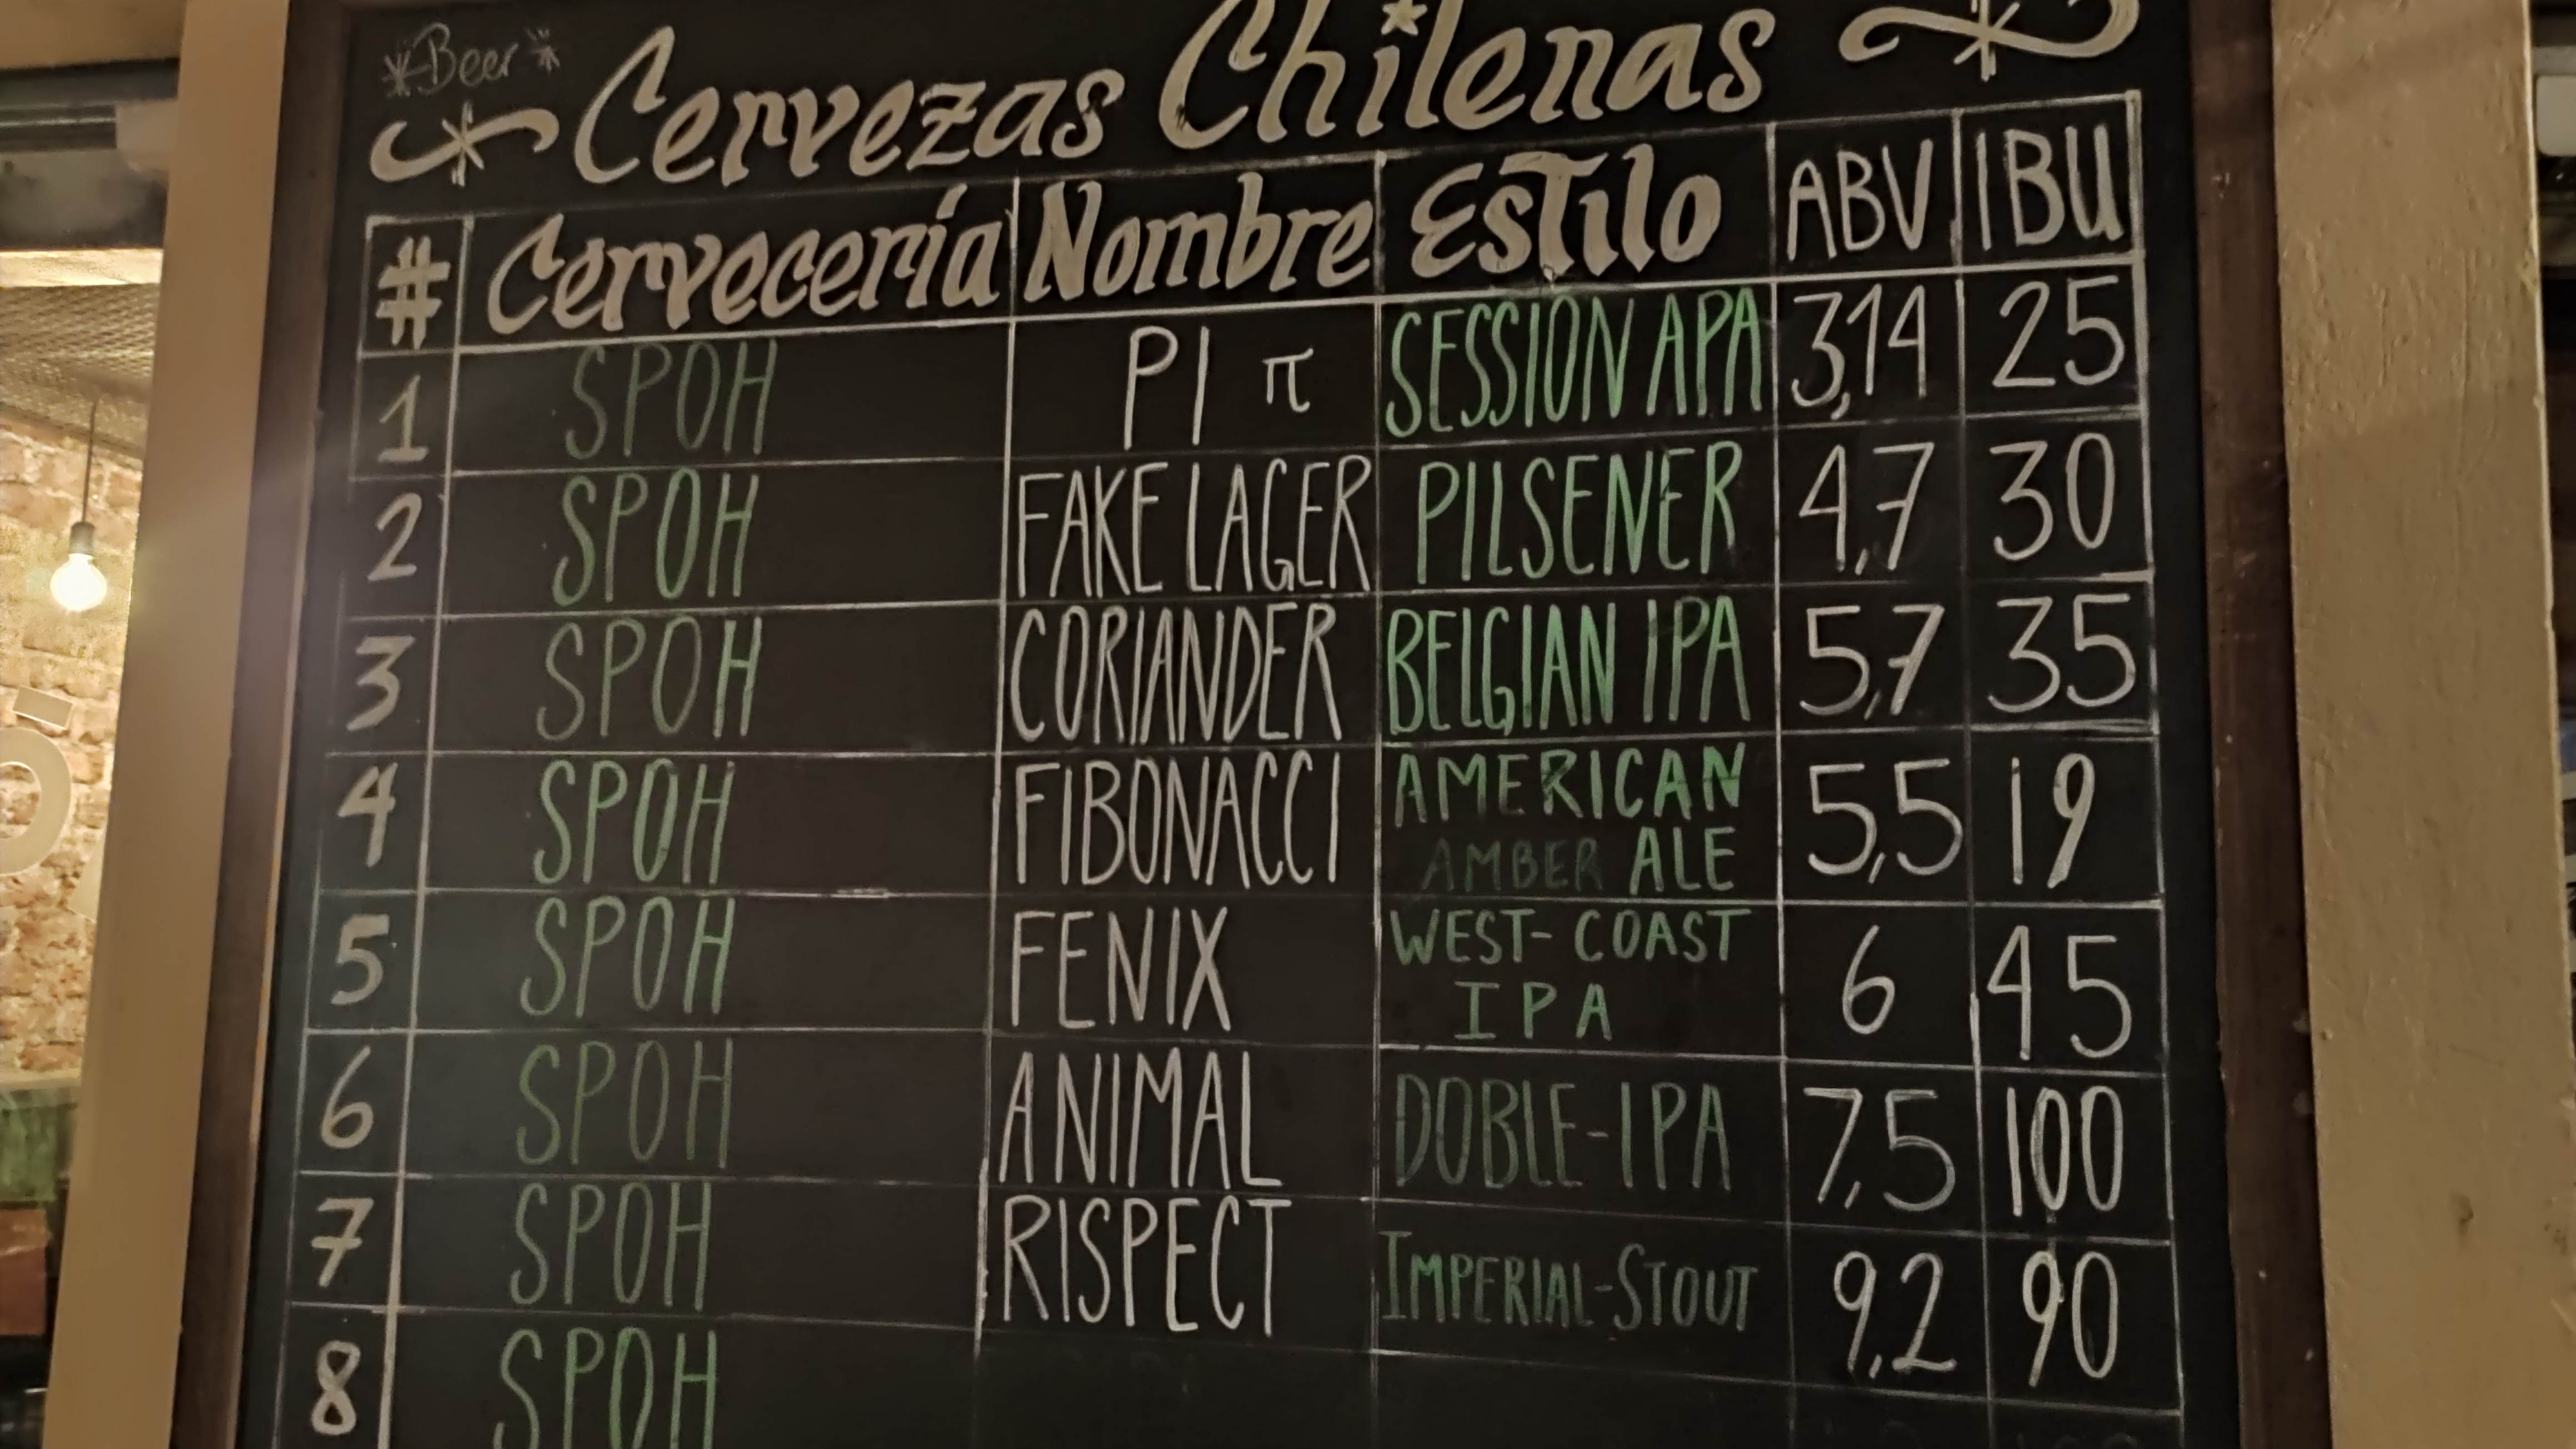 Beer
Cervezas Chilenas
# Cervecería Nombre Estilo ABV IBU
1 SPOH PI π SESSION APA 3,14 25
2 SPOH FAKE LAGER PILSENER 4,7 30
3 SPOH CORIANDER BELGIAN IPA 5,7 35
4 SPOH FIBONACCI AMERICAN AMBER ALE 5,5 19
5 SPOH FENIX WEST-COAST IPA 6 45
6 SPOH ANIMAL DOBLE-IPA 7,5 100
7 SPOH RISPECT IMPERIAL-STOUT 9,2 90
8 SPOH